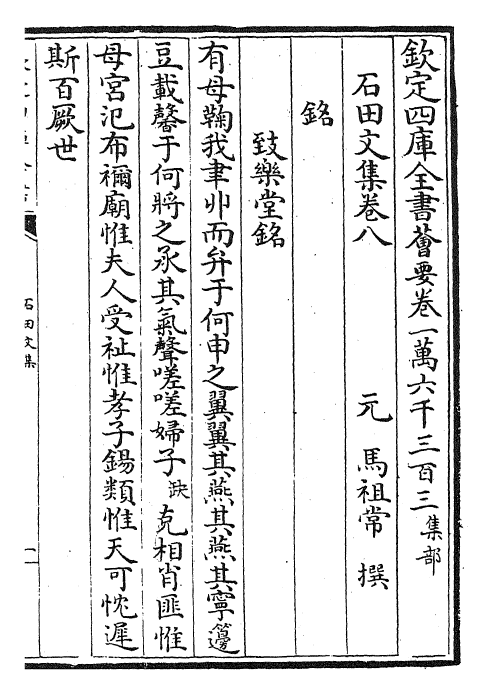 欽定四庫全書薈要卷一萬六千三百三 集部
石田文集卷八 元 馬祖常 撰
銘
致樂堂銘
有母鞠我聿丱而弁于何申之翼翼其燕其燕其寧籩
豆載馨于何將之承其氣聲嗟嗟婦子 缺 克相肖匪惟
母宮汜布禰廟惟夫人受祉惟孝子錫類惟天可忱遲
斯百厥世
石田文集
一